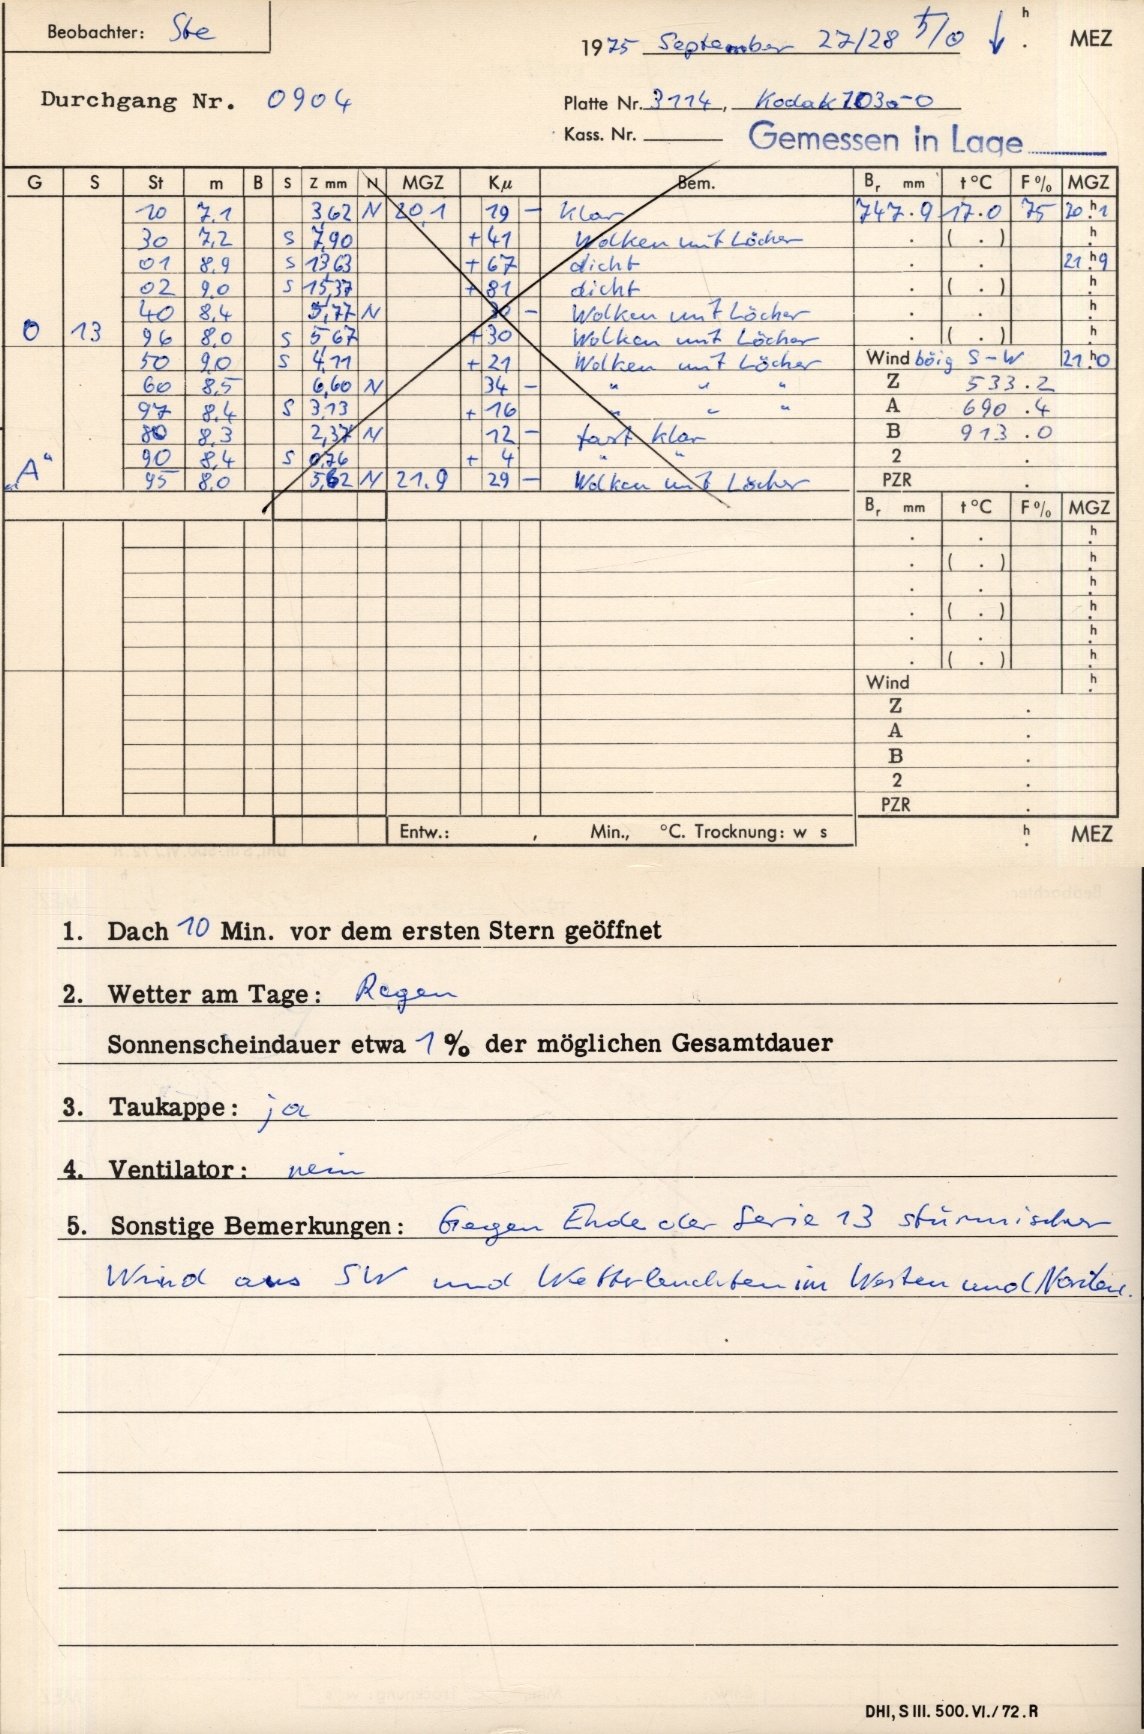 Beobachter: Ste
1975 September 27/28 5/0 ↓ h . MEZ
Durchgang Nr. 0904
Platte Nr. 3114, Kodak 103a-O
Kass. Nr.
Gemessen in Lage
G S St m B S Z mm N MGZ Kμ Bem. Br mm t °C F % MGZ
10 7,1 3,62 N 20,1 19 − klar 747.9 17.0 75 20.h1
30 7,2 S 7,90 + 41 Wolken mit Löcher . ( . ) h
01 8,9 S 13,63 + 67 dicht . . 21.h9
02 9,0 S 15,37 + 81 dicht . ( . ) h
40 8,4 5,77 N 30 − Wolken mit Löcher . . h
0 13 96 8,0 S 5,67 + 30 Wolken mit Löcher . ( . ) h
50 9,0 S 4,11 + 21 Wolken mit Löcher Wind böig S-W 21.h0
60 8,5 6,60 N 34 − " " " Z 533.2
97 8,4 S 3,13 + 16 " " " A 690.4
80 8,3 2,37 N 12 − fast klar B 913.0
„A“ 90 8,4 S 0,76 + 4 " " 2 .
95 8,0 5,62 N 21.9 29 − Wolken mit Löcher PZR .
Br mm t °C F % MGZ
. . h
. ( . ) h
. . h
. ( . ) h
. . h
. ( . ) h
Wind h
Z .
A .
B .
2 .
PZR .
Entw.: , Min., °C. Trocknung: w s h . MEZ
1. Dach 10 Min. vor dem ersten Stern geöffnet
2. Wetter am Tage: Regen
Sonnenscheindauer etwa 1 % der möglichen Gesamtdauer
3. Taukappe: ja
4. Ventilator: nein
5. Sonstige Bemerkungen: Gegen Ende der Serie 13 stürmischer
Wind aus SW und Wetterleuchten im Westen und Norden.
DHI, S III. 500. VI./72. R